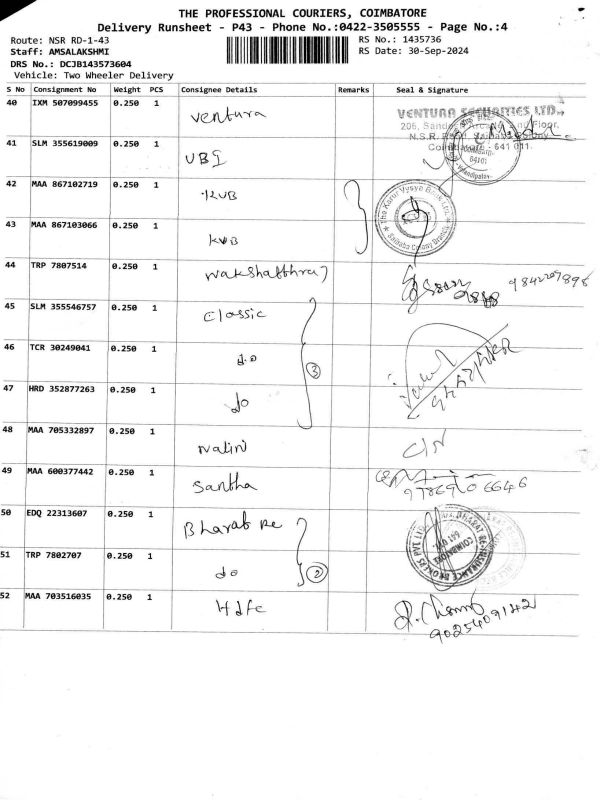 THE PROFESSIONAL COURIERS, COIMBATORE
Delivery Runsheet - P43 - Phone No.:0422-3505555 - Page No.:4
Route: NSR RD-1-43
RS No.: 1435736
Staff: AMSALAKSHMI
RS Date: 30-Sep-2024
DRS No.: DCJB143573604
Vehicle: Two Wheeler Delivery
S No Consignment No Weight PCS Consignee Details Remarks Seal & Signature
40 IXM 507099455 0.250 1 Ventura VENTURA SECURITIES LTD.,
41 SLM 355619009 0.250 1 UBI Coimbatore - 641 011.
42 MAA 867102719 0.250 1 KVB The Karur Vysya Bank Ltd.
43 MAA 867103066 0.250 1 KVB Saibaba Colony Branch
44 TRP 7807514 0.250 1
45 SLM 355546757 0.250 1 Classic
46 TCR 30249041 0.250 1 do 3
47 HRD 352877263 0.250 1 do
48 MAA 705332897 0.250 1 Nalini
49 MAA 600377442 0.250 1 Santha
50 EDQ 22313607 0.250 1 Bharat Re
51 TRP 7802707 0.250 1 do 2
52 MAA 703516035 0.250 1 Hdfc
9025409142